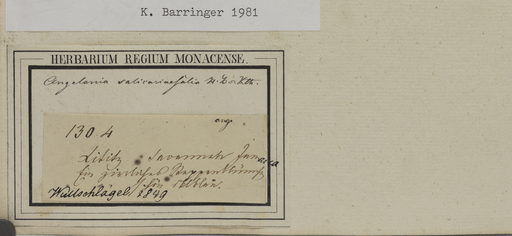 K. Barringer 1981
HERBARIUM REGIUM MONACENSE.
Angelonia salicariaefolia H. B. Kth.
ang.
1304
Lititz Savannah Jamaica
Ein zierliches
blau.
Wullschlägel, 1849